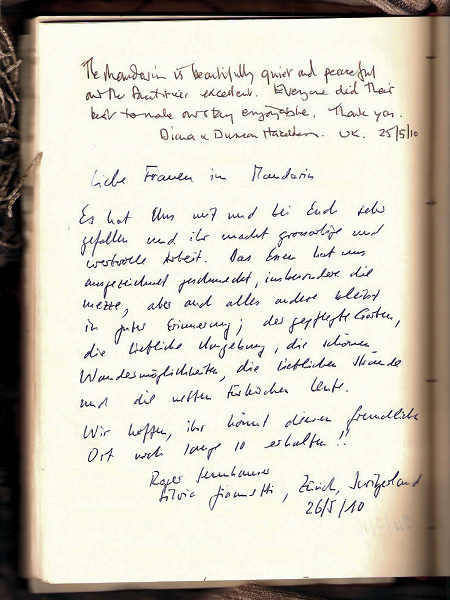 The Mandarin is beautifully quiet and peaceful
and the facilities excellent. Everyone did their
best to make our stay enjoyable. Thank you.
Diana & Duncan UK. 25/5/10
Liebe Frauen im Mandarin
Es hat Uns mit und bei Euch sehr
gefallen und ihr macht grossartige und
wertvolle Arbeit. Das Essen hat uns
ausgezeichnet geschmeckt, insbesondere die
mezze, aber auch alles andere bleibt
in guter Erinnerung; der gepflegte Garten,
die liebliche Umgebung, die schönen
Wandermöglichkeiten, die lieblichen Strände
und die netten türkischen Leute.
Wir hoffen, ihr könnt diesen freundlichen
Ort noch lange so erhalten!!
Roger
Silvia Giannetti, Zürich, Switzerland
26/5/10